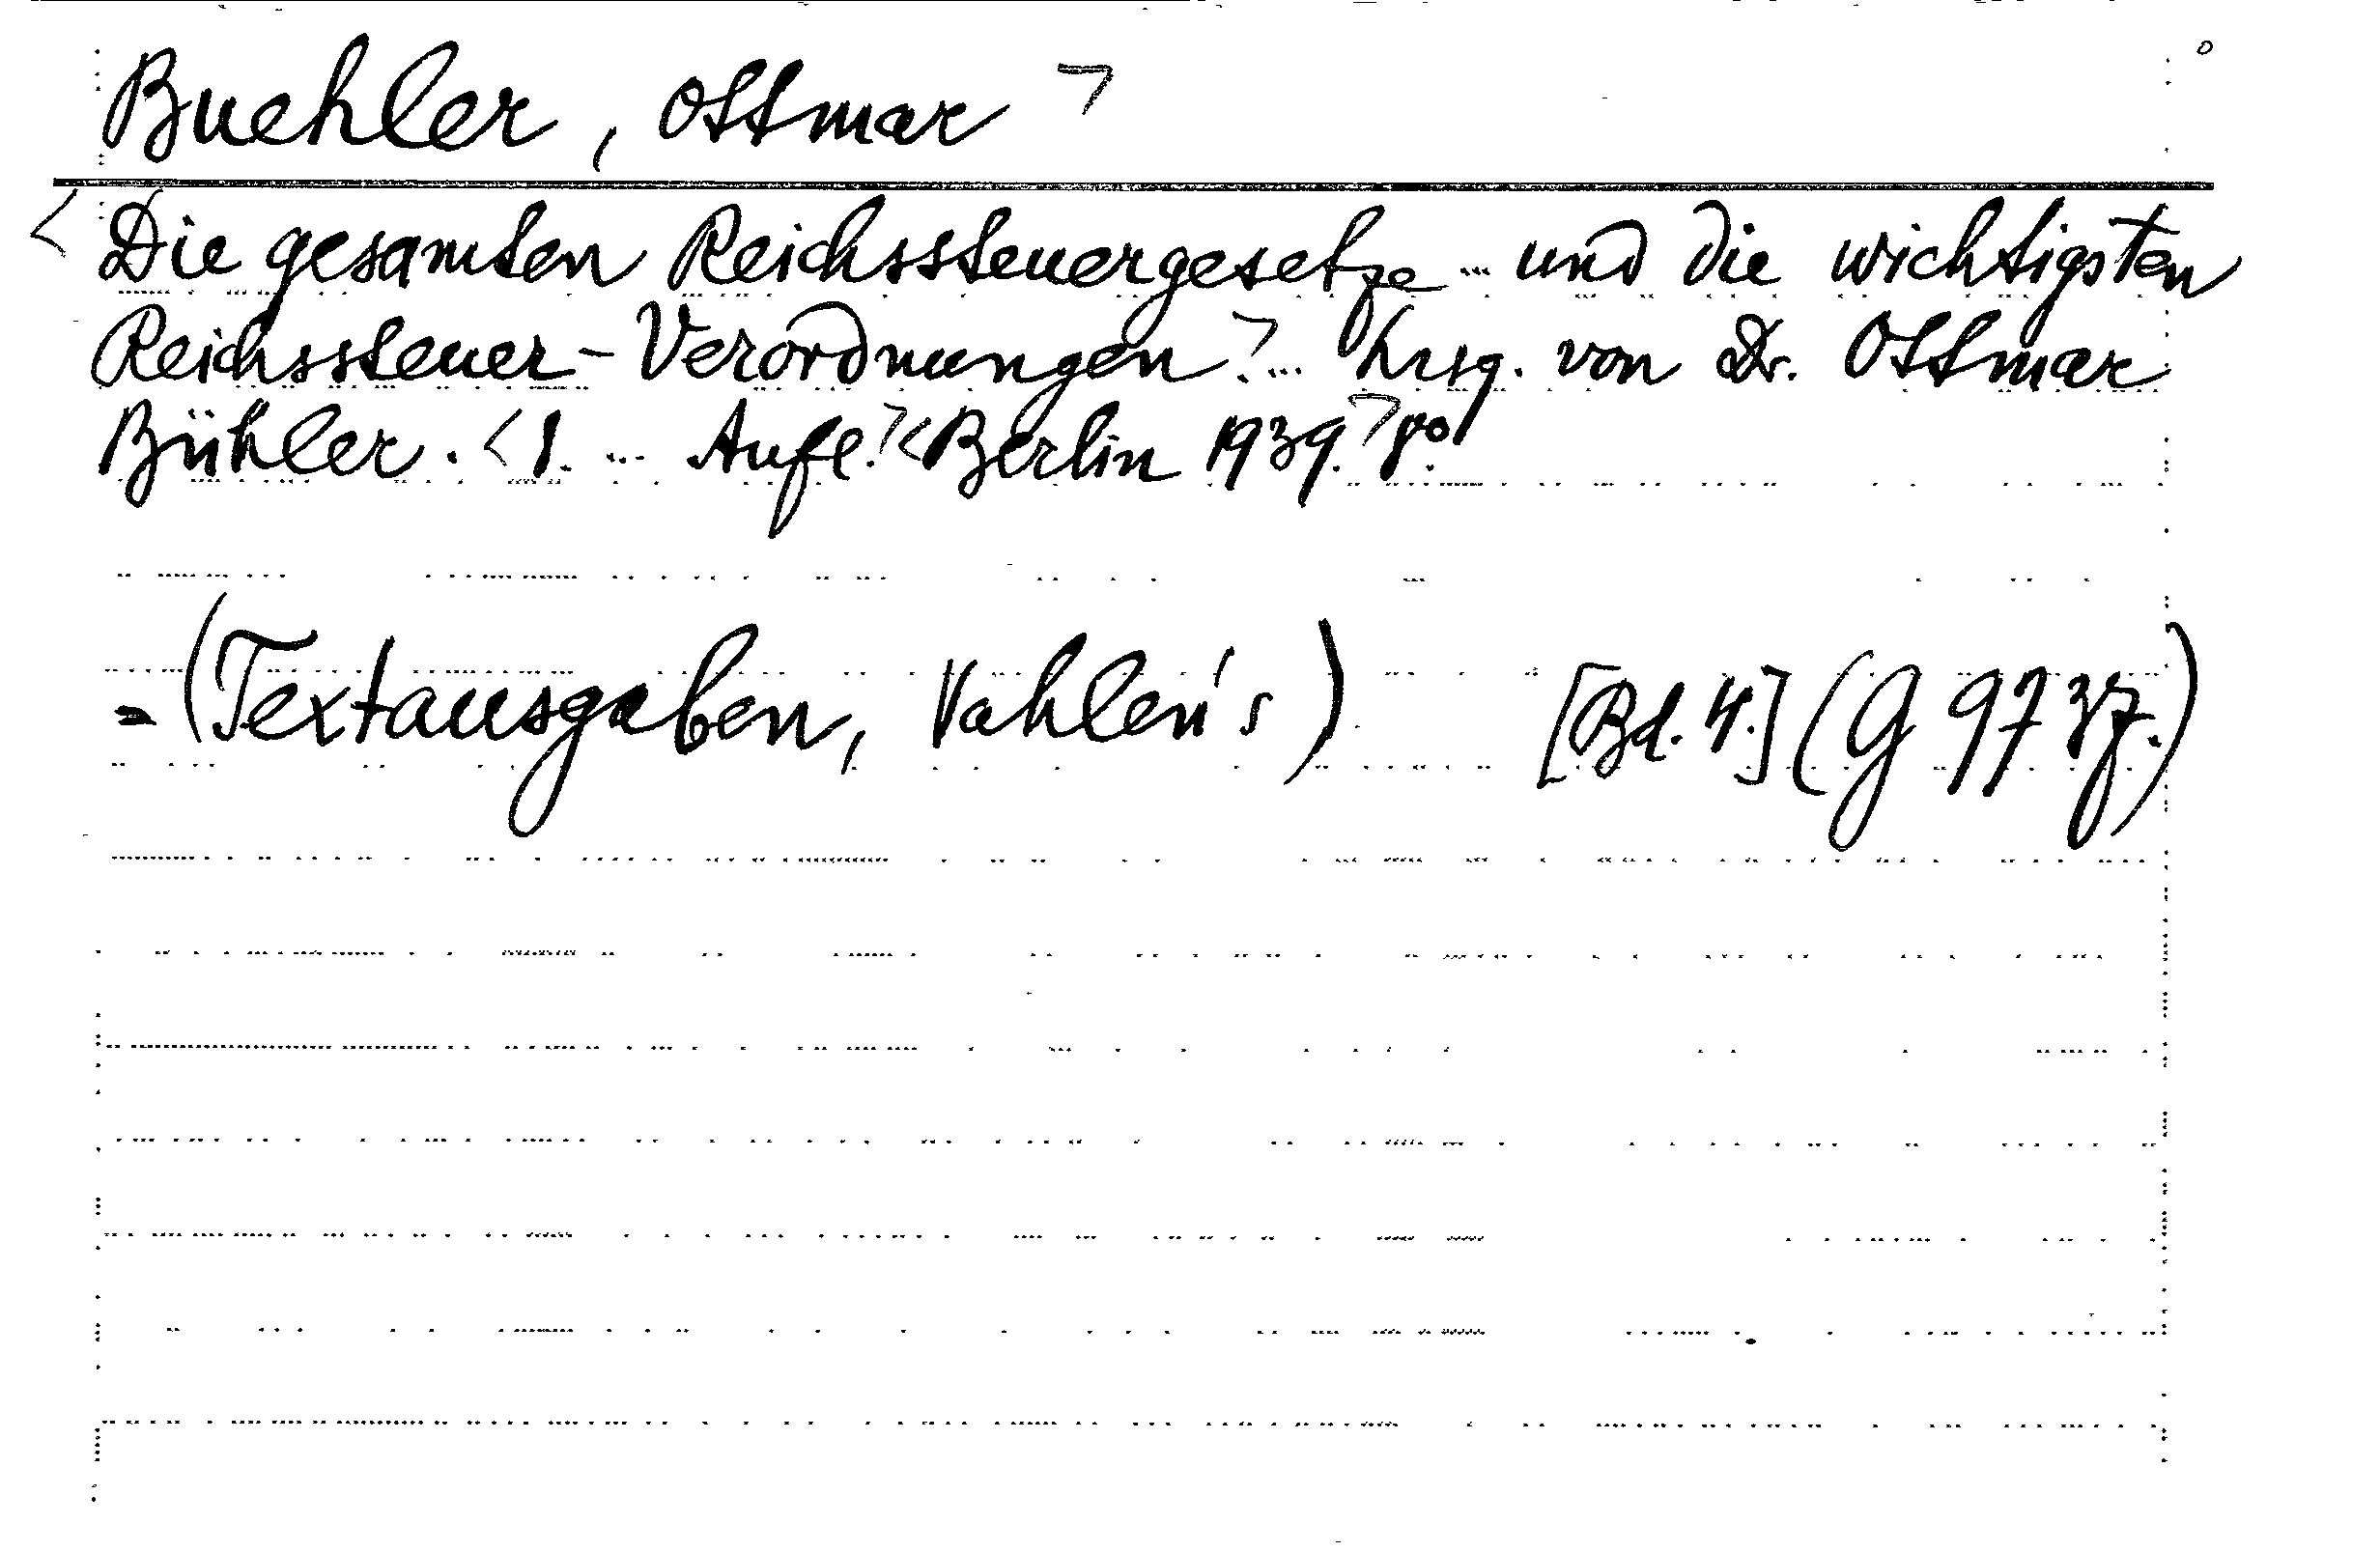 Buehler, Ottmar >
< Die gesamten Reichssteuergesetze ... und die wichtigsten
Reichssteuer-Verordnungen.> ... hrsg. von Dr. Ottmar
Bühler. < 1. ... Aufl.> < Berlin 1939.> 8°.
= (Textausgaben, Vahlen's) [Bd. 4.] (G 97 37.)